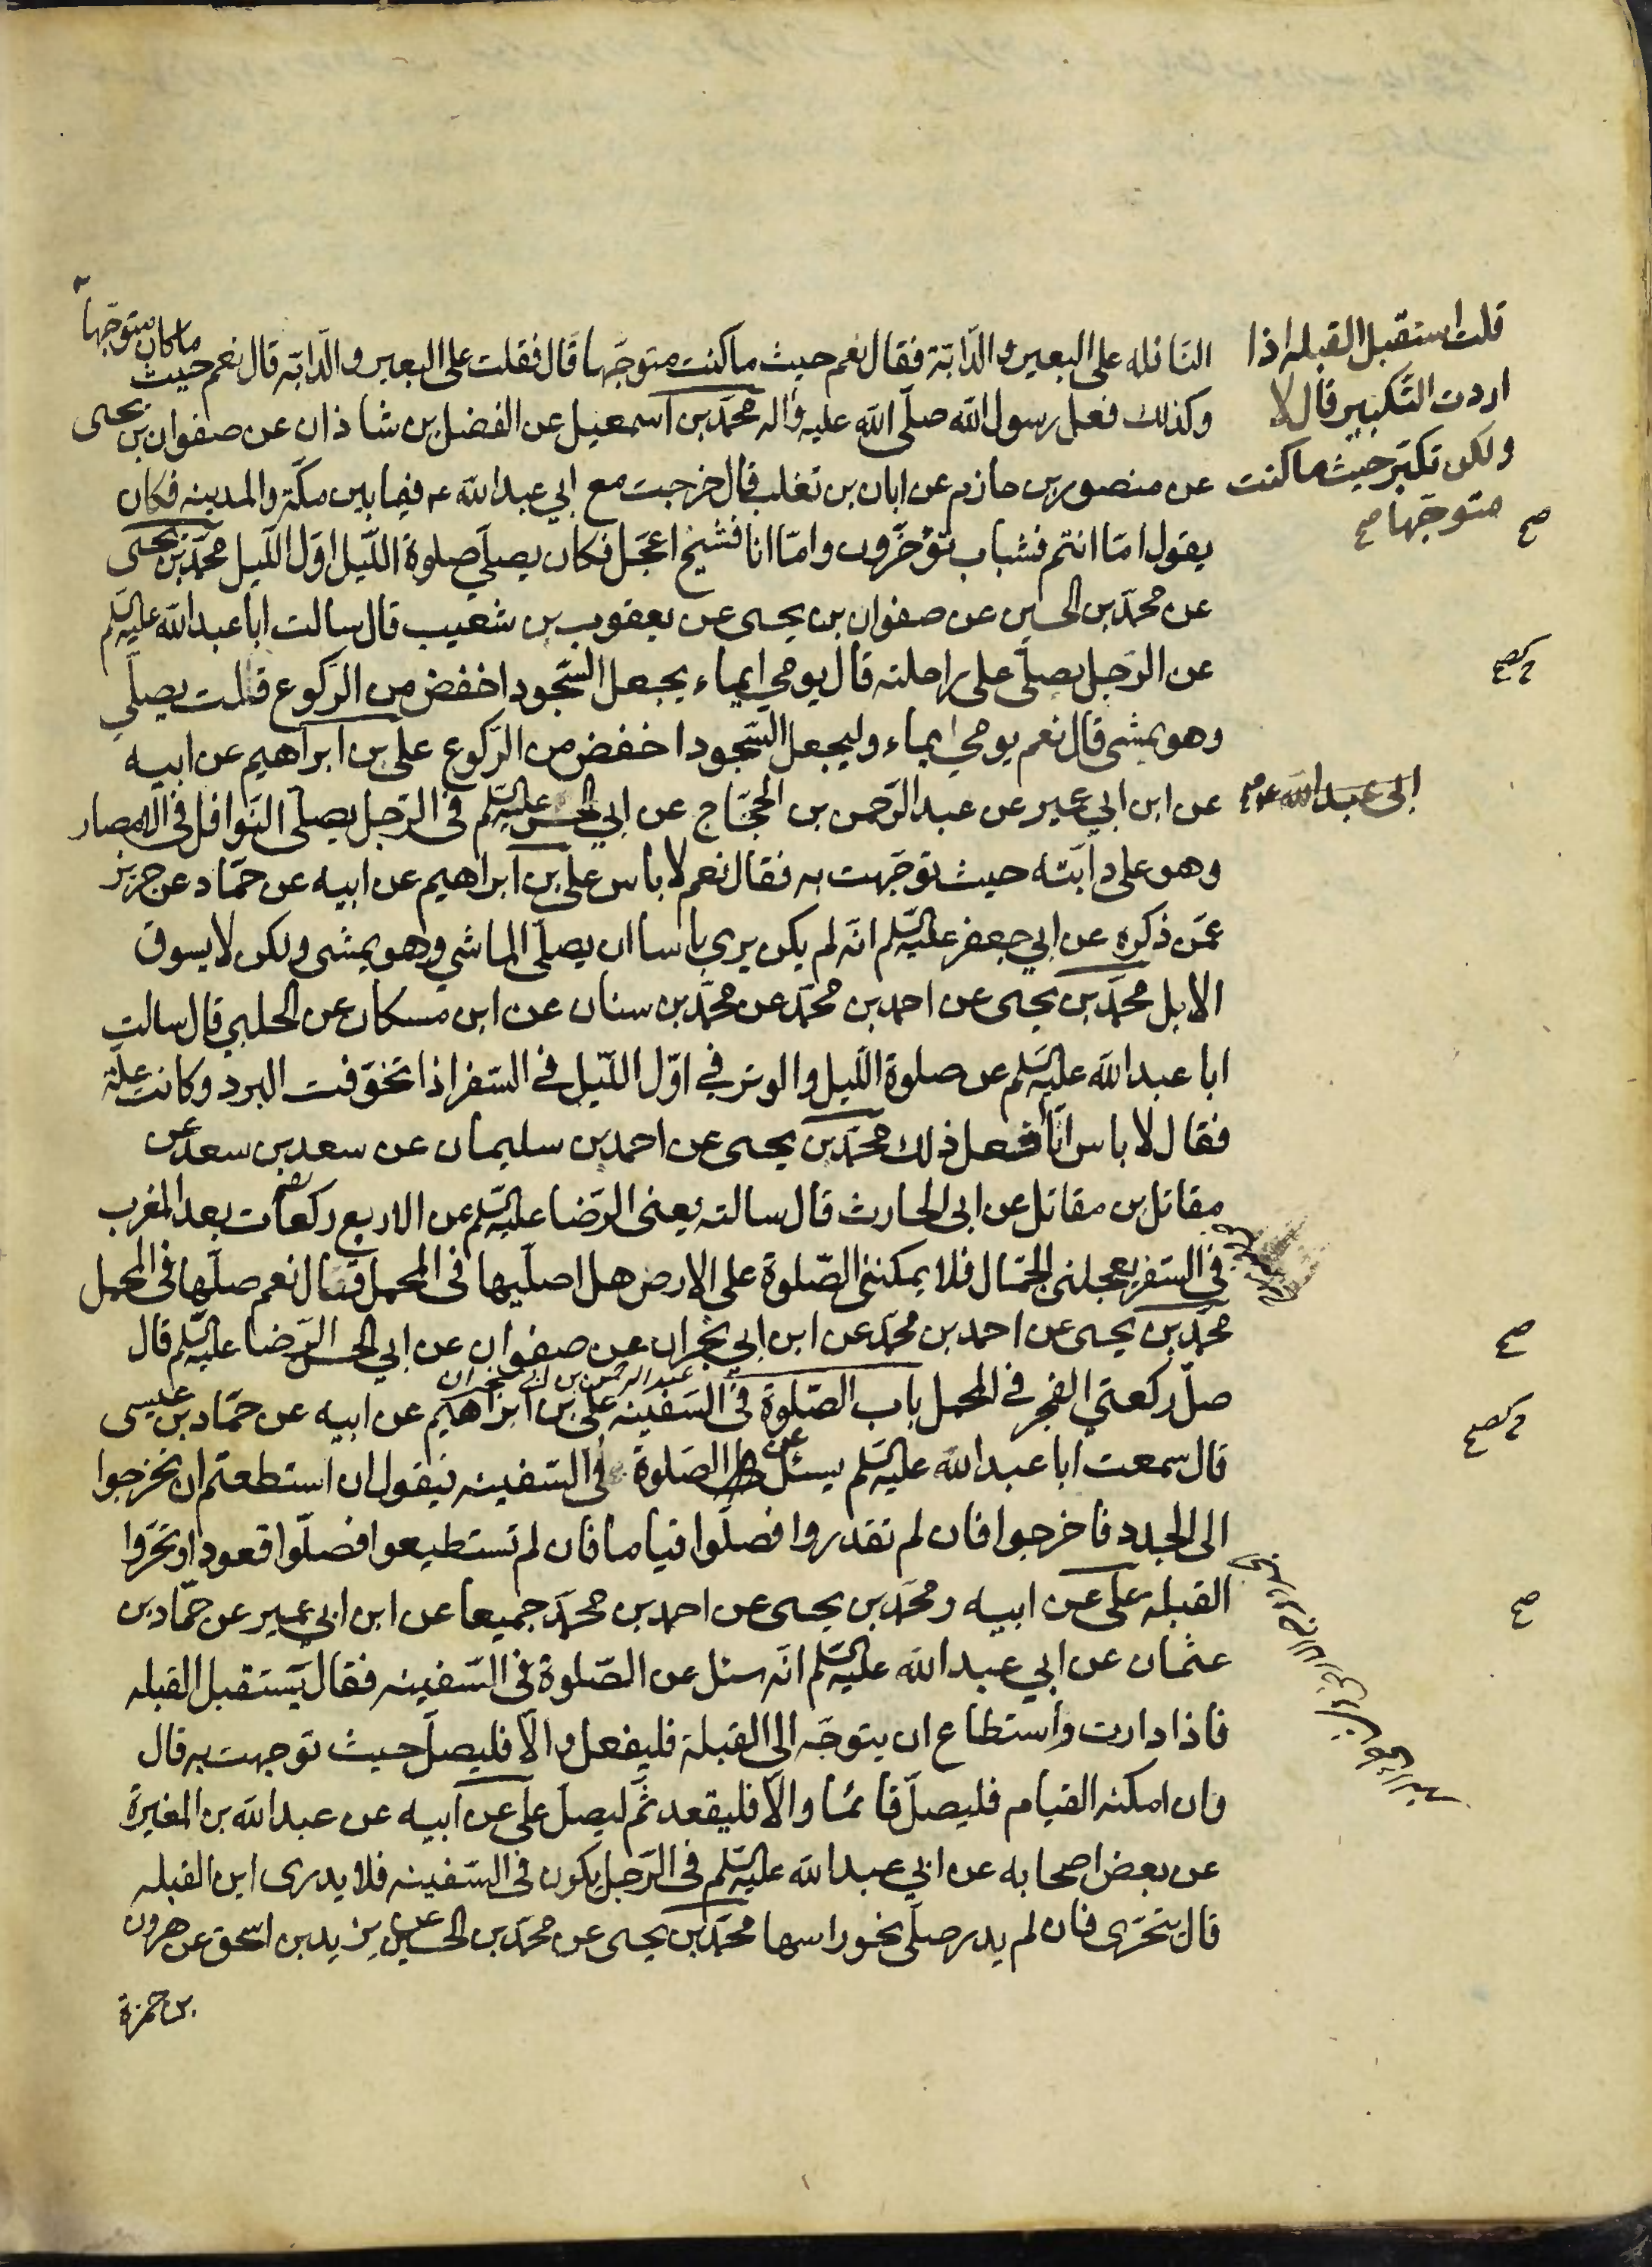 النافله على البعير والدّابّة فقال نعم حيث ما كنت متوجّها قال فقلت على البعير والدّابّة قال نعم حيث ما كان متوجّهاً
وكذلك فعل رسول الله صلّى الله عليه وآله محمّد بن اسمعيل عن الفضل بن شاذان عن صفوان بن يحيى
عن منصور بن حازم عن ابان بن تغلب قال خرجت مع ابي عبد الله ع فيما بين مكّة والمدينه فكان
يقول امّا انتم فشباب تؤخّرون وامّا انا فشيخ اعجّل فكان يصلّي صلوة اللّيل اوّل اللّيل محمّد بن يحيى
عن محمّد بن الحسين عن صفوان بن يحيى عن يعقوب بن شعيب قال سالت ابا عبد الله عليه السّلم
عن الرّجل يصلّي على راحلته قال يومي ايماء يجعل السّجود اخفض من الرّكوع قلت يصلّي
وهو يمشي قال نعم يومي ايماء وليجعل السّجود اخفض من الرّكوع علي بن ابراهيم عن ابيه
عن ابن ابي عمير عن عبد الرّحمن بن الحجّاج عن ابي الحسن عليه السّلم في الرّجل يصلّي النّوافل في الامصار
وهو على دابّته حيث توجّهت به فقال نعم لا باس علي بن ابراهيم عن ابيه عن حمّاد عن حريز
عمّن ذكره عن ابي جعفر عليه السّلم انّه لم يكن يرى باسا ان يصلّي الماشي وهو يمشي ولكن لا يسوق
الابل محمّد بن يحيى عن احمد بن محمّد عن محمّد بن سنان عن ابن مسكان عن الحلبي قال سالت
ابا عبد الله عليه السّلم عن صلوة اللّيل والوتر في اوّل اللّيل في السّفر اذا تخوّفت البرد وكانت علّة
فقال لا باس انا افعل ذلك محمّد بن يحيى عن احمد بن سليمان عن سعد بن سعد عن
مقاتل بن مقاتل عن ابي الحارث قال سالته يعني الرّضا عليه السّلم عن الاربع ركعات بعد المغرب
في السّفر يعجلني الجمّال فلا يمكنني الصّلوة على الارض هل اصلّيها في المحمل فقال نعم صلّها في المحمل
محمّد بن يحيى عن احمد بن محمّد عن ابن ابي نجران عن صفوان عن ابي الحسن الرّضا عليه السّلم قال
عبد الرحمن بن ابي نجران
صلّ ركعتي الفجر في المحمل باب الصّلوة في السّفينه علي بن ابراهيم عن ابيه عن حمّاد بن عيسى
قال سمعت ابا عبد الله عليه السّلم يسئل عن الصّلوة في السّفينه فيقول ان استطعتم ان تخرجوا
الى الجدد فاخرجوا فان لم تقدروا فصلّوا قياما فان لم تستطيعوا فصلّوا قعودا وتحرّوا
القبلة علي عن ابيه ومحمّد بن يحيى عن احمد بن محمّد جميعا عن ابن ابي عمير عن حمّاد بن
عثمان عن ابي عبد الله عليه السّلم انّه سئل عن الصّلوة في السّفينه فقال يستقبل القبله
فاذا دارت واستطاع ان يتوجّه الى القبلة فليفعل والّا فليصلّ حيث توجهت به قال
وان امكنه القيام فليصلّ قائما والّا فليقعد ثمّ ليصلّ علي عن ابيه عن عبد الله بن المغيرة
عن بعض اصحابه عن ابي عبد الله عليه السّلم في الرّجل يكون في السّفينه فلا يدرى اين القبله
قال يتحرّى فان لم يدر صلّى نحو راسها محمّد بن يحيى عن محمّد بن الحسين عن يزيد بن اسحق عن هرون
بن حمزة
قلت استقبل القبله اذا
اردت التّكبير قال لا
ولكن تكبّر حيث ما كنت
متوجّها صح
صح
الى عبد الله ع
صح
صح